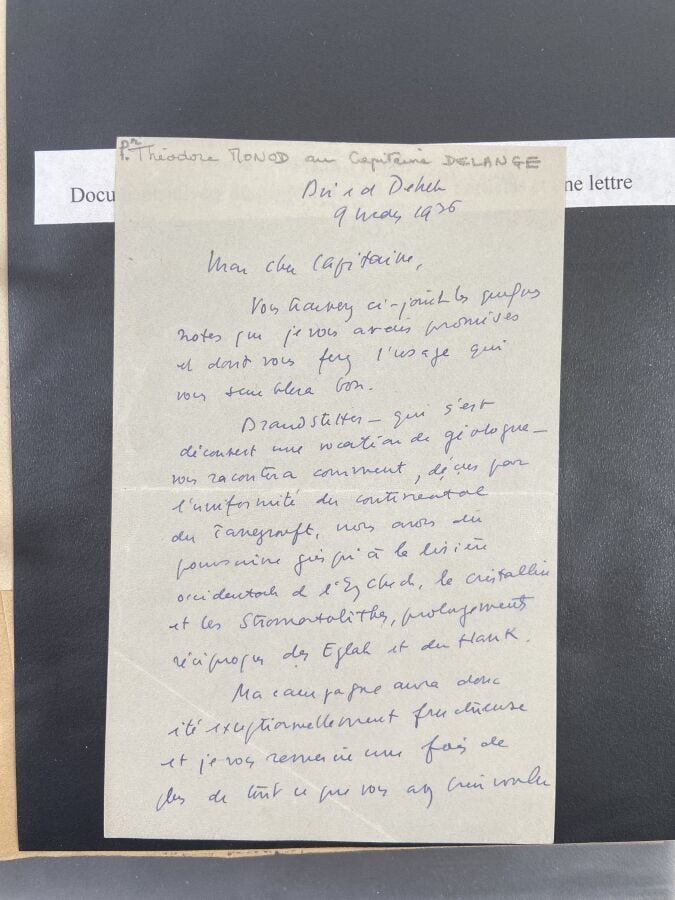 Pr Théodore MONOD au Capitaine DELANGE
Docu
ne lettre
Bir ed Deheb
9 mars 1936
Mon cher Capitaine,
Vous trouverez ci-joint les quelques
notes que je vous avais promises
et dont vous ferez l'usage qui
vous semblera bon.
Brandstetter – qui s'est
découvert une vocation de géologue –
vous racontera comment, déçus par
l'uniformité du continental
du Tanezrouft, nous avons dû
poursuivre jusqu'à la lisière
occidentale de l'Erg Chech, le cristallin
et les Stromatolithes, prolongements
réciproques des Eglab et du Hank.
Ma campagne aura donc
été exceptionnellement fructueuse
et je vous remercie une fois de
plus de tout ce que vous avez bien voulu